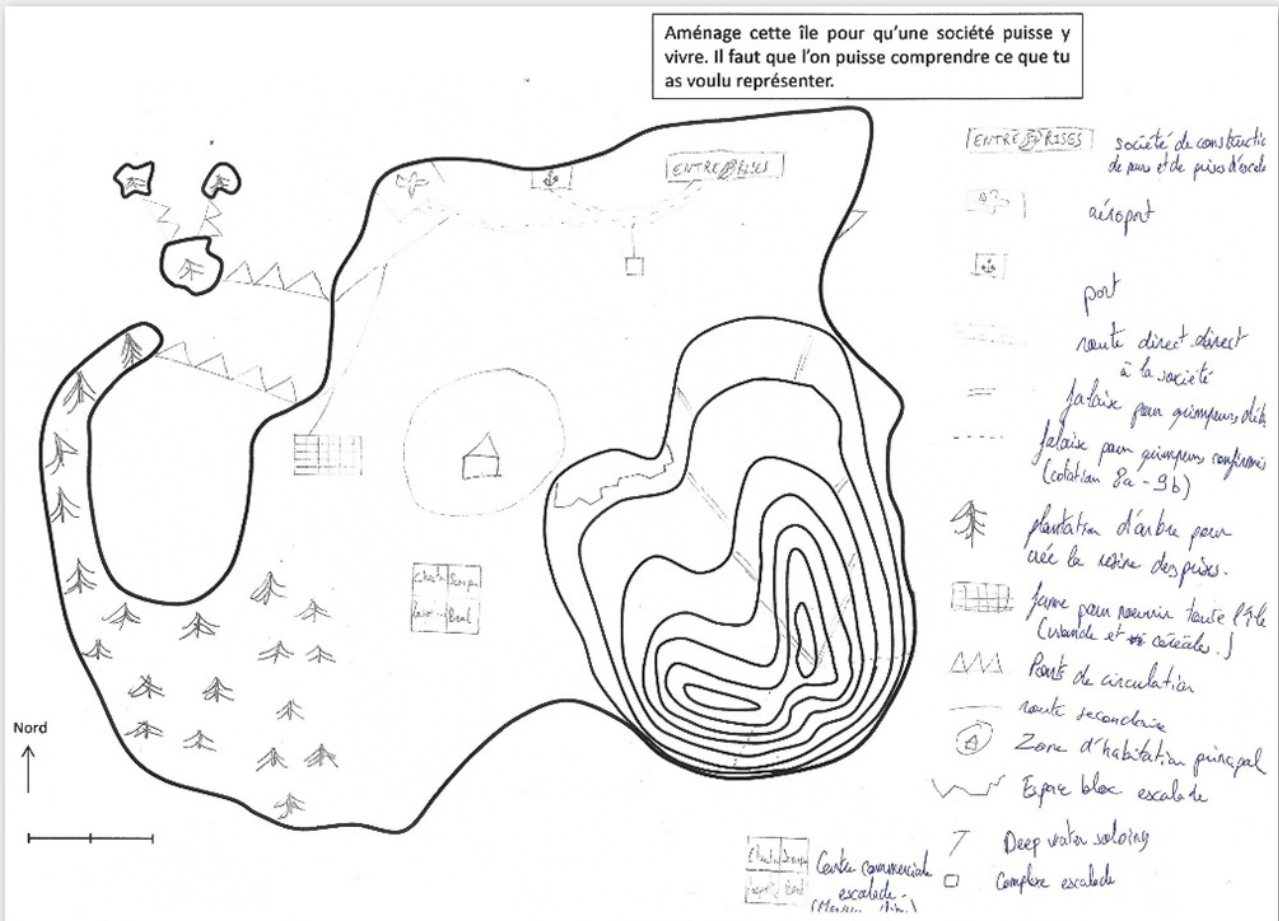 Aménage cette île pour qu'une société puisse y
vivre. Il faut que l'on puisse comprendre ce que tu
as voulu représenter.
ENTREPRISES
ENTREPRISES
société de constructio
de murs et de prises d'escala
aéroport
port
route direct direct
à la société
falaise pour grimpeurs
falaise pour grimpeurs confirmés
(cotation 8a - 9b)
plantation d'arbre pour
crée la résine des prises.
ferme pour nourrir toute l'île
(viande et céréales.)
Ponts de circulation
route secondaire
Zone d'habitation principal
Espace bloc escalade
Deep water soloing
Complexe escalade
Beal
Nord
Centre commerciale
escalade.